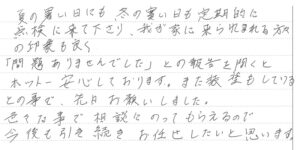 夏の暑い日にも、冬の寒い日も定期的に
点検に来て下さり、我が家に来られまれる方
の印象も良く
「問題ありませんでした」との報告を聞くと
ホットー安心しております。また施工もしている
との事で、先日お願いしました。
色々な事で相談にのってもらえるので
今後も引き続きお任せしたいと思います。